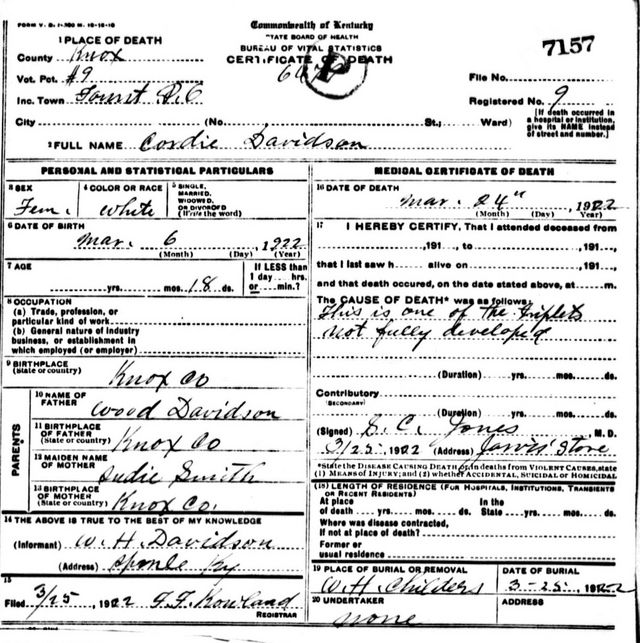 FORM V. S. 1-300 M. 10-16-16
Commonwealth of Kentucky
STATE BOARD OF HEALTH
BUREAU OF VITAL STATISTICS
CERTIFICATE OF DEATH
7157
1 PLACE OF DEATH
County Knox
Vot. Pct. #9
Inc. Town
City (No. St.; Ward)
File No.
Registered No. 9
[If death occurred in a hospital or institution, give its NAME instead of street and number.]
2 FULL NAME Cordie Davidson
PERSONAL AND STATISTICAL PARTICULARS
3 SEX
Fem.
4 COLOR OR RACE
White
5 SINGLE, MARRIED, WIDOWED, OR DIVORCED (Write the word)
6 DATE OF BIRTH
Mar. 6 1922
(Month) (Day) (Year)
7 AGE
yrs. mos. 18 ds.
If LESS than 1 day hrs. or min.?
8 OCCUPATION
(a) Trade, profession, or particular kind of work
(b) General nature of industry business, or establishment in which employed (or employer)
9 BIRTHPLACE
(State or country) Knox Co
PARENTS
10 NAME OF FATHER Wood Davidson
11 BIRTHPLACE OF FATHER (State or country) Knox Co
12 MAIDEN NAME OF MOTHER Sudie Smith
13 BIRTHPLACE OF MOTHER (State or country) Knox Co.
14 THE ABOVE IS TRUE TO THE BEST OF MY KNOWLEDGE
(Informant) W. H. Davidson
(Address) Ky
15
Filed 3/25 1922 Rowland
REGISTRAR
MEDICAL CERTIFICATE OF DEATH
16 DATE OF DEATH
Mar. 24" 1922
(Month) (Day) (Year)
17 I HEREBY CERTIFY, That I attended deceased from
191 to 191
that I last saw h alive on 191
and that death occured, on the date stated above, at m.
The CAUSE OF DEATH* was as follows:
This is one of the triplets
not fully developed
(Duration) yrs. mos. ds.
Contributory
(SECONDARY)
(Duration) yrs. mos. ds.
(Signed) S. C. Jones M. D.
3/25 1922 (Address) Jarvis' Store
*State the DISEASE CAUSING DEATH, or, in deaths from VIOLENT CAUSES, state
(1) MEANS OF INJURY; and (2) whether ACCIDENTAL, SUICIDAL OR HOMICIDAL
(18) LENGTH OF RESIDENCE (FOR HOSPITALS, INSTITUTIONS, TRANSIENTS OR RECENT RESIDENTS)
At place of death yrs. mos. ds. In the State yrs. mos. ds.
Where was disease contracted, If not at place of death?
Former or usual residence
19 PLACE OF BURIAL OR REMOVAL
W. H. Childers
DATE OF BURIAL
3-25- 1922
20 UNDERTAKER
None
ADDRESS